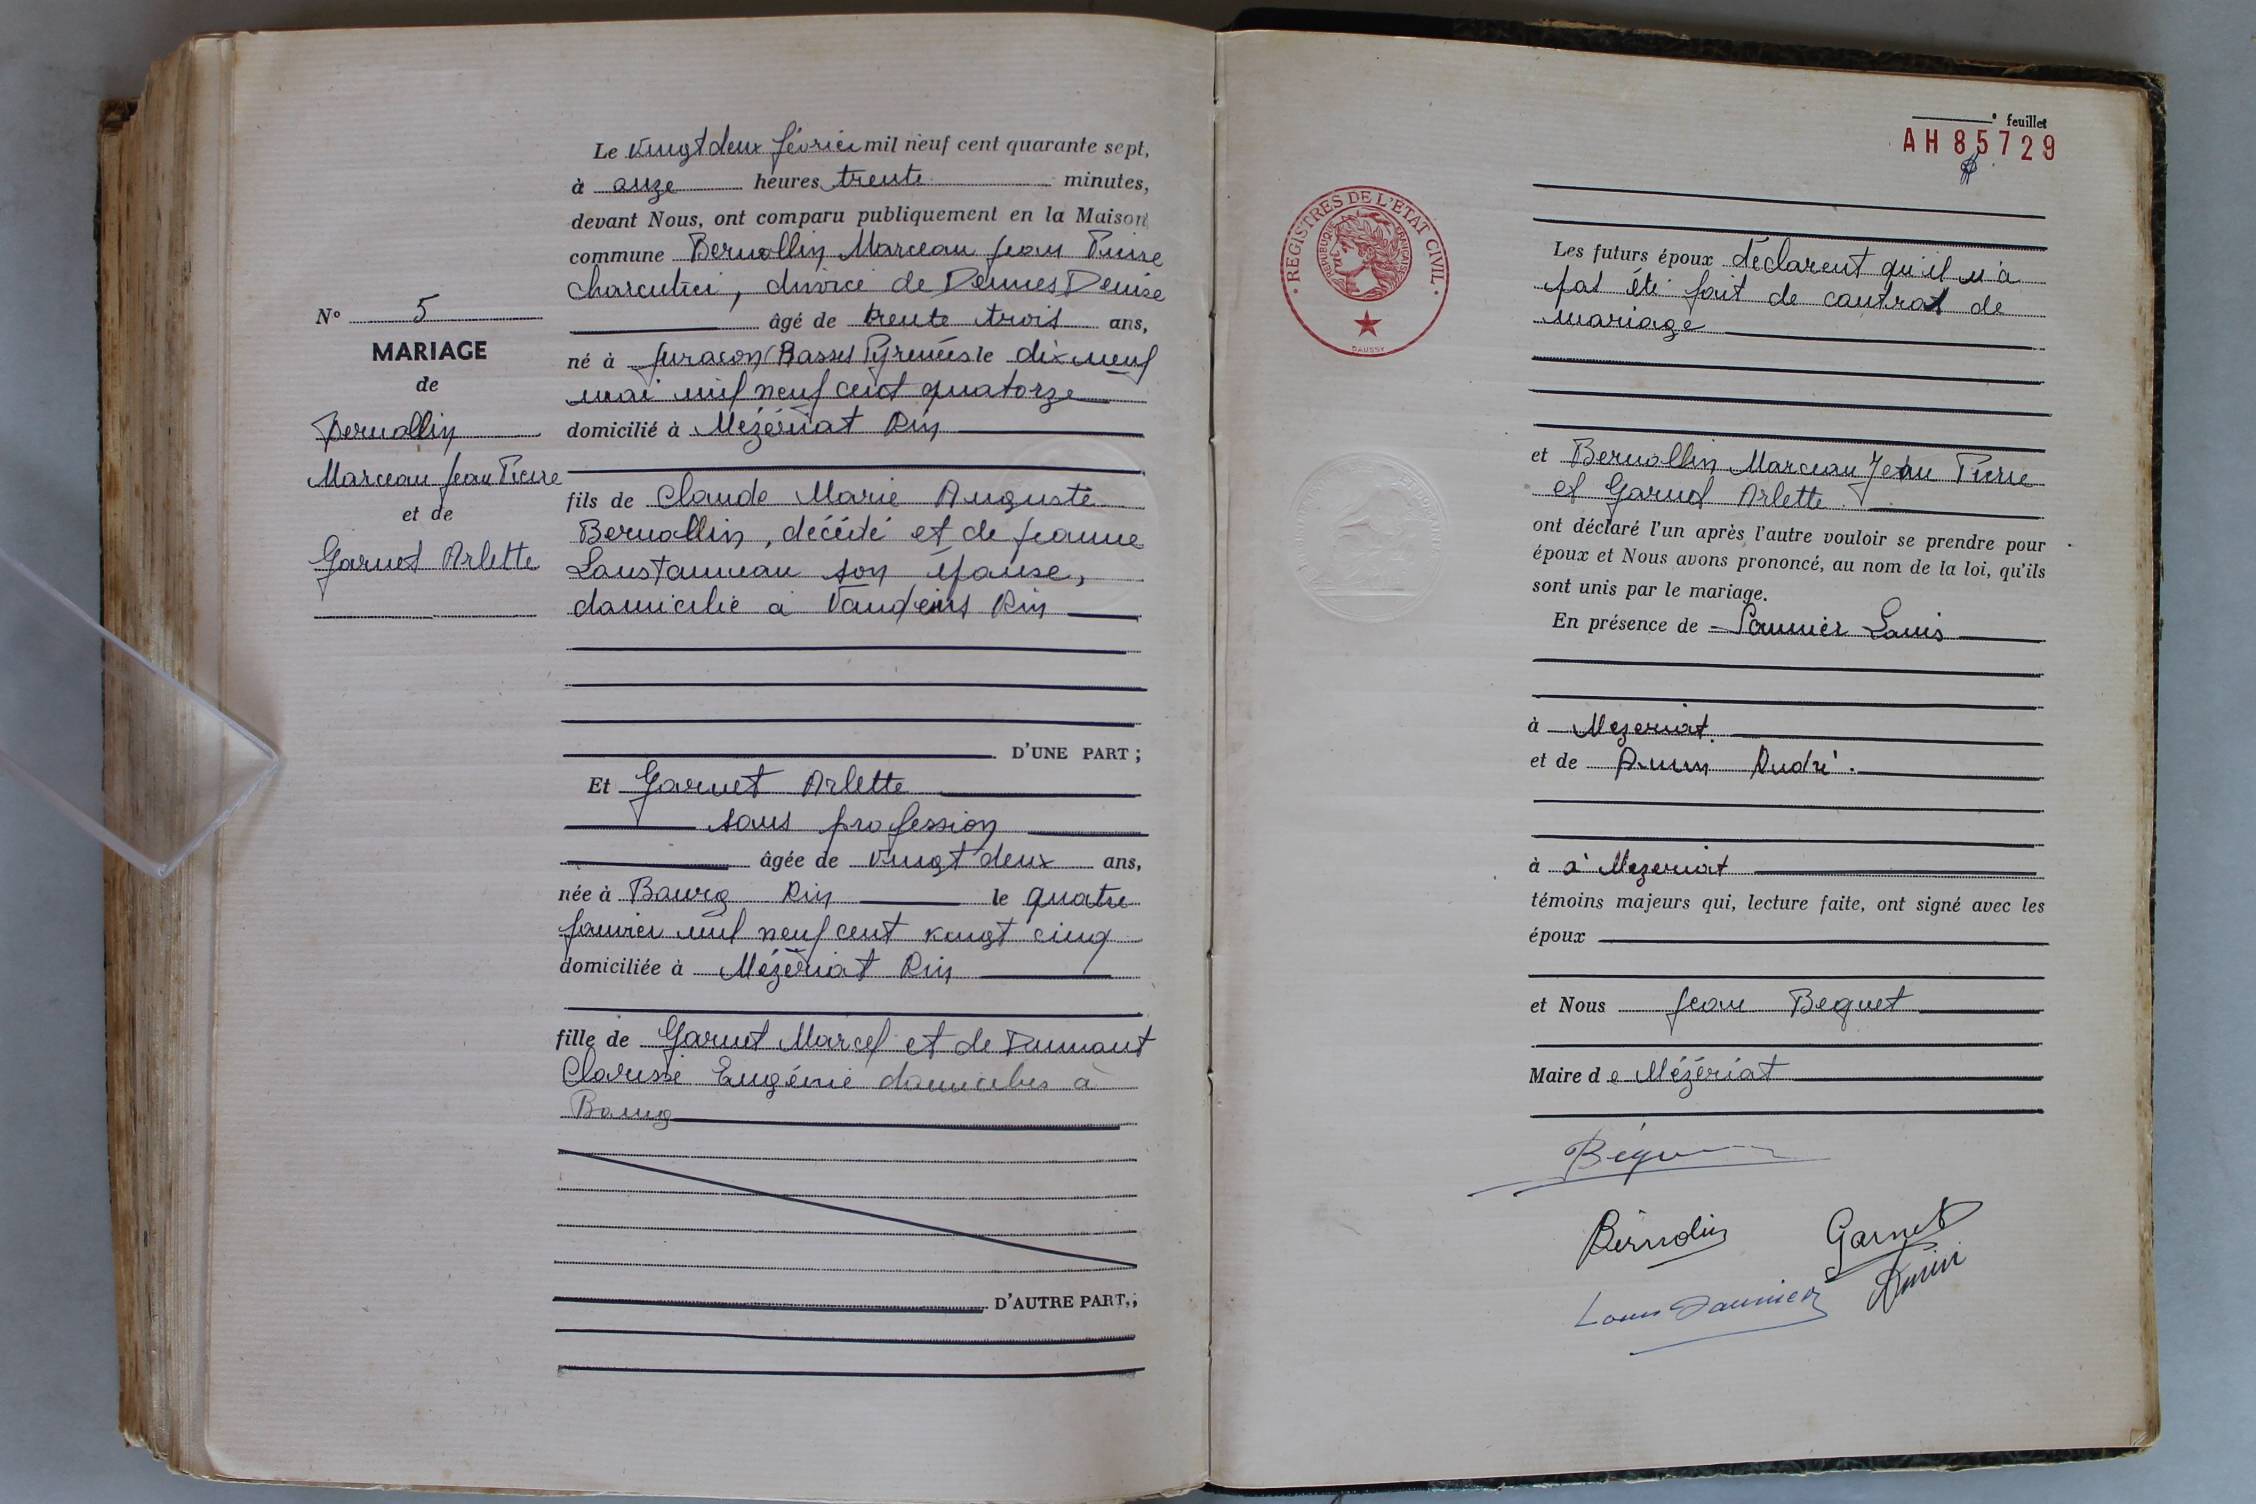 Le vingt deux février mil neuf cent quarante sept,
à onze heures trente minutes,
devant Nous, ont comparu publiquement en la Maison
commune Bernollin Marceau Jean Pierre
charcutier, divorcé de Dennes Denise
âgé de trente trois ans,
né à Juraçon (Basses Pyrénées le dix neuf
mai mil neuf cent quatorze
domicilié à Mézériat Ain
fils de Claude Marie Auguste
Bernollin, décédé et de Jeanne
Loustauneau son épouse,
domicilié à Vandeins Ain
D'UNE PART ;
N° 5
MARIAGE
de
Bernollin
Marceau Jean Pierre
et de
Garnet Arlette
Et Garnet Arlette
sans profession
âgée de vingt deux ans,
née à Bourg Ain le quatre
janvier mil neuf cent vingt cinq
domiciliée à Mézériat Ain
fille de Garnet Marcel et de Dumont
Clarisse Eugénie domiciliés à
Bourg
D'AUTRE PART,;
feuillet
AH 85729
REGISTRES DE L'ETAT CIVIL
REPUBLIQUE FRANÇAISE
DAUSSY
Les futurs époux déclarent qu'il n'a
pas été fait de contrat de
mariage
et Bernollin Marceau Jean Pierre
et Garnet Arlette.
ont déclaré l'un après l'autre vouloir se prendre pour
époux et Nous avons prononcé, au nom de la loi, qu'ils
sont unis par le mariage.
En présence de Louis
à Mezeriat.
et de André.
à à Mezeriat
témoins majeurs qui, lecture faite, ont signé avec les
époux
et Nous Jean Beguet
Maire de Mézériat
Bernolin Garnet
Louis